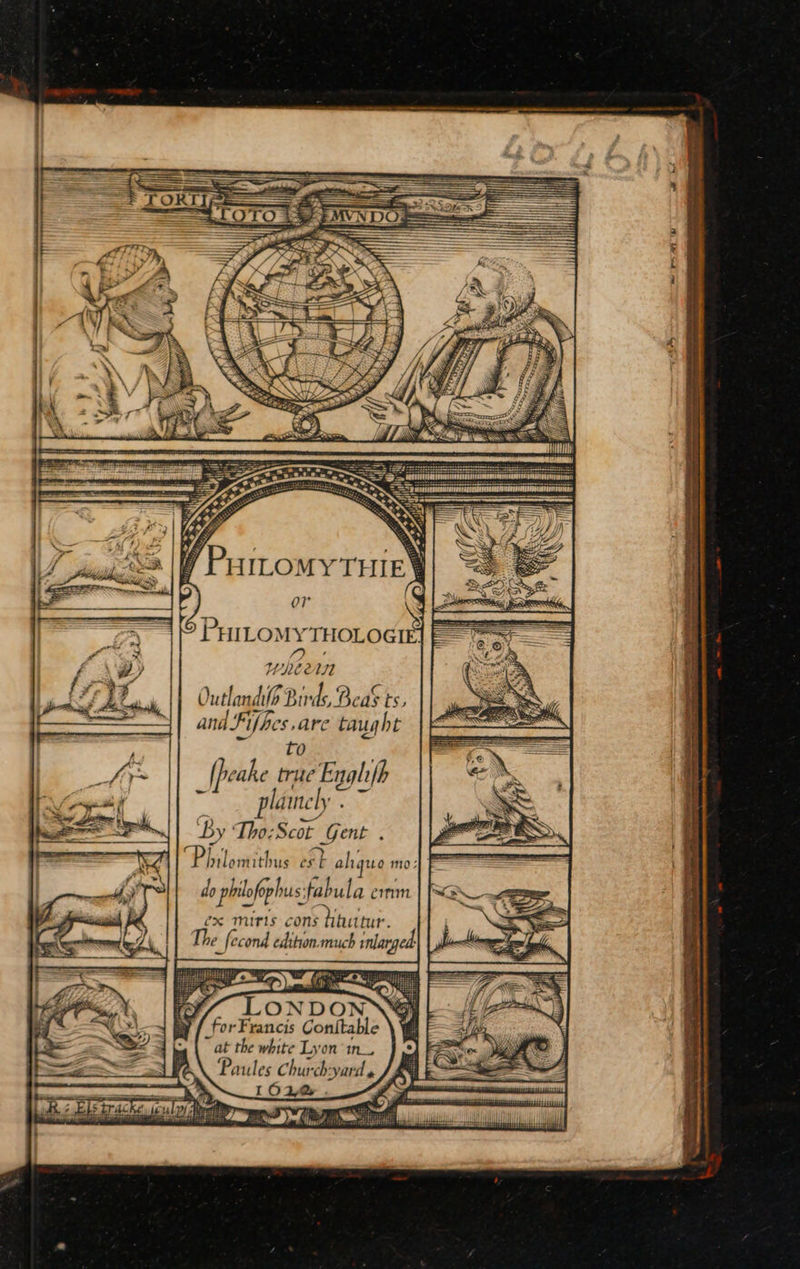 40461
TORTI
TOTO MVNDO
PHILOMYTHIE
or
PHILOMYTHOLOGIE
wherin
Outlandiſh Birds, Beasts,
and Fiſhes, are taught
to
ſpeake true Engliſh
plainely .
By Tho: Scot Gent .
Philomithus est aliquo mo:
do philoſophus: fabula enim
ex miris constituitur.
The ſecond edition. much inlarged
LONDON
for Francis Conſtable
at the white Lyon in
Paules Church-yard.
R: Elstracke ſculpſ